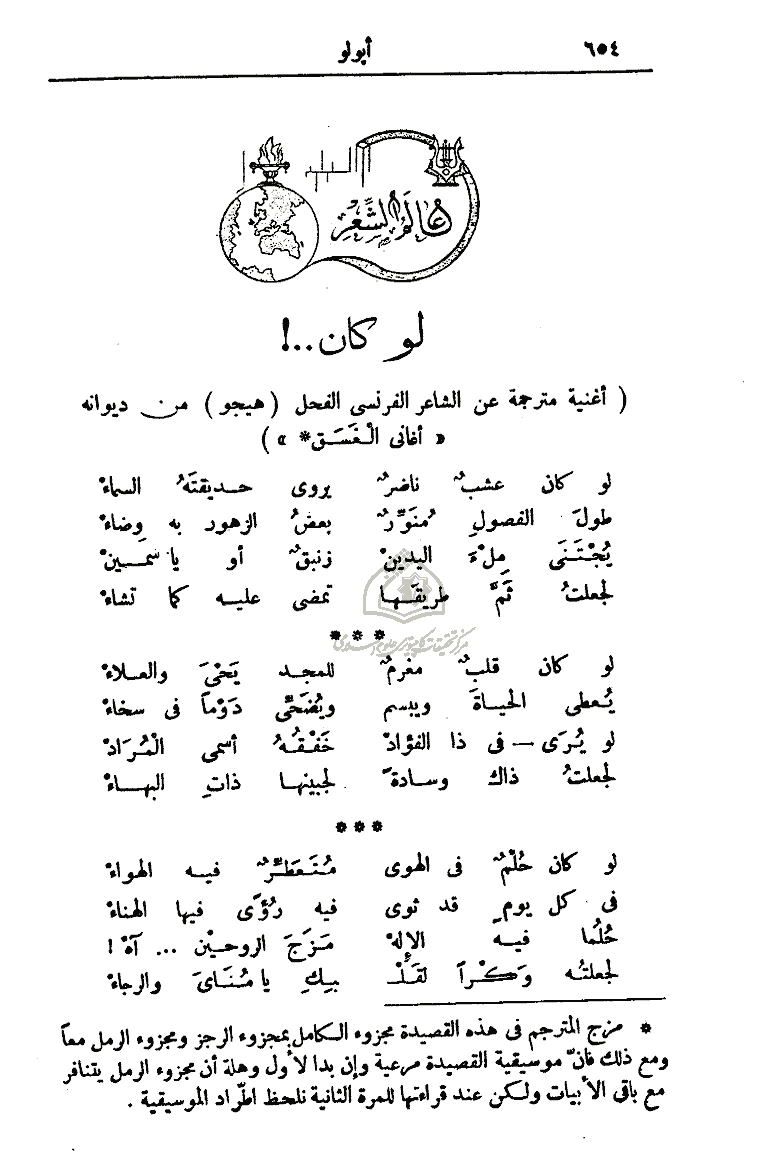 ٦٥٤ أبولو
عالم الشِّعر
لو كان ..!
( أغنية مترجمة عن الشاعر الفرنسى الفحل ( هيجو ) من ديوانه
« أغانى الْغَسَق* » )
لو كان عشبٌ ناضرٌ يروى حديقتَهُ السماءْ
طولَ الفصولِ مُنَوِّرٌ بعضُ الزهور به وِضاءْ
يُجْتَنَى مِلْءَ اليدينْ زنبقٌ أو ياسَمِينْ
لجعلتُ ثَمَّ طريقَها تمضى عليه كما تشاءْ
* * *
لو كان قلبٌ مغرمٌ للمجد يَحْىَ والعلاءْ
يُعطى الحياةَ ويبسم ويُضَحِّى دَوْماً فى سخاءْ
لو يُرَى — فى ذا الفؤادْ خَفْقُهُ أسمى الْمُرَادْ
لجعلتُ ذاك وسادةً لجبينها ذاتِ البهاءْ
* * *
لو كان حُلْمٌ فى الهوى مُتَعَطِّرٌ فيه الهواءْ
فى كل يومٍ قد ثوى فيه رُؤًى فيها الهناءْ
حُلُما فيه الإِلهْ مَزَجَ الروحيْن ... آهْ !
لجعلتُه وَكْراً لقَلْـ ـبِكِ يا مُنَاىَ والرجاءْ
* مزج المترجم فى هذه القصيدة مجزوء الكامل بمجزوء الرجز ومجزوء الرمل معاً
ومع ذلك فانّ موسيقية القصيدة مرعية وإن بدا لأول وهلة أن مجزوء الرمل يتنافر
مع باقى الأبيات ولكن عند قراءتها للمرة الثانية نلحظ اطّراد الموسيقية .